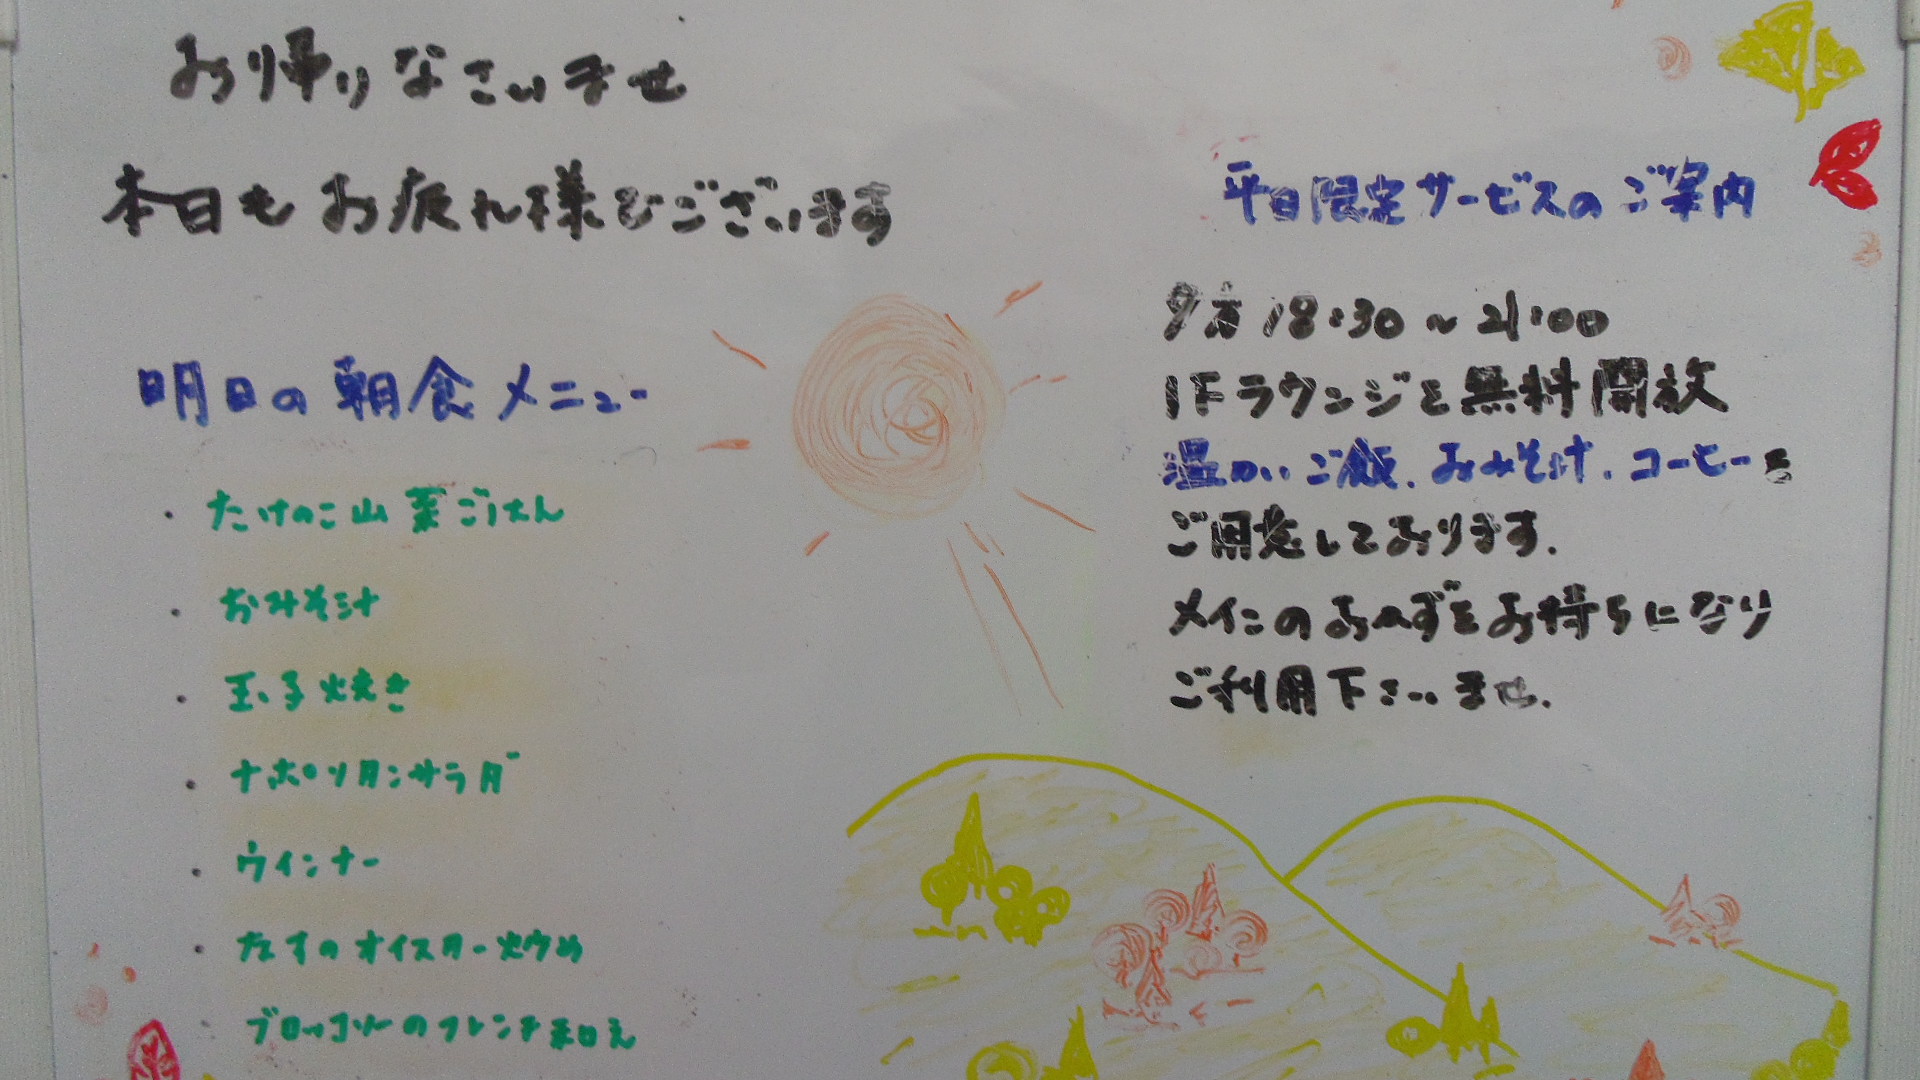 お帰りなさいませ
本日もお疲れ様でございます
明日の朝食メニュー
・たけのこ山菜ごはん
・おみそ汁
・玉子焼き
・ナポリタンサラダ
・ウインナー
・なすのオイスター炒め
・ブロッコリーのフレンチ和え
平日限定サービスのご案内
夕方 18:30～21:00
1Fラウンジを無料開放
温かいご飯、おみそ汁、コーヒーを
ご用意しております。
メインのおかずをお持ちになり
ご利用下さいませ。